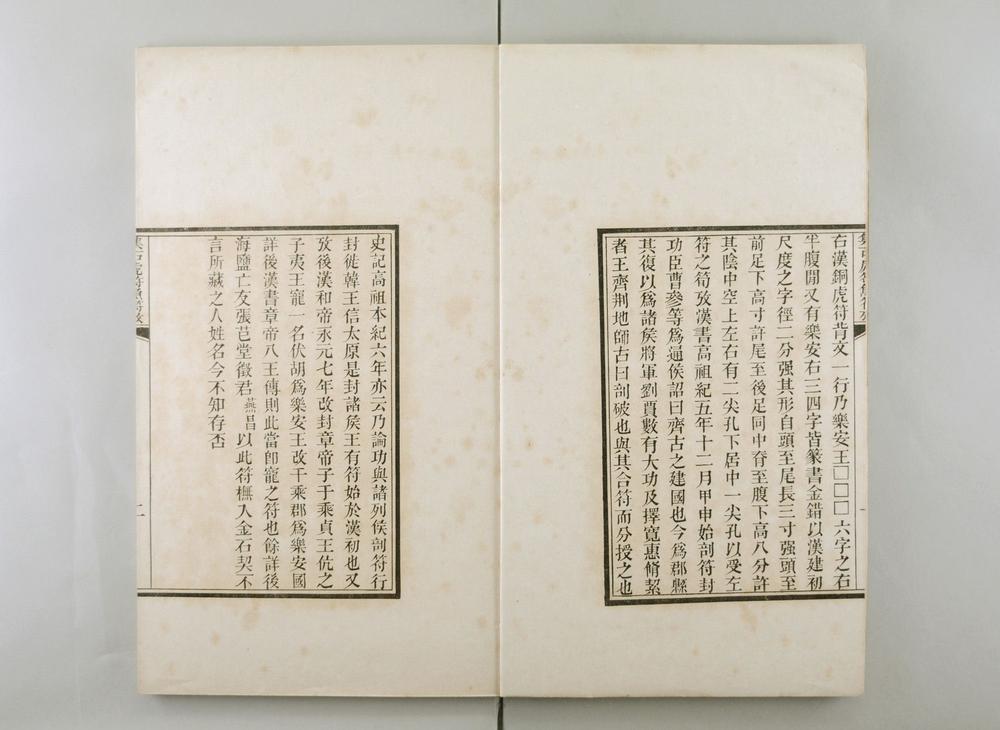 右漢銅虎符背文一行乃樂安王□□□六字之右
半腹閒又有樂安右三四字皆篆書金錯以漢建初
尺度之字徑二分强其形自頭至尾長三寸强頭至
前足下高寸許尾至後足同中脊至腹下高八分許
其陰中空上左右有二尖孔下居中一尖孔以受左
符之筍攷漢書高祖紀五年十二月甲申始剖符封
功臣曹參等爲通侯詔曰齊古之建國也今爲郡縣
其復以爲諸矦將軍劉賈數有大功及擇寬惠脩絜
者王齊荆地師古曰剖破也與其合符而分授之也
史記高祖本紀六年亦云乃論功與諸列侯剖符行
封徙韓王信太原是封諸矦王有符始於漢初也又
攷後漢和帝永元七年改封章帝子千乘貞王伉之
子夷王寵一名伏胡爲樂安王改千乘郡爲樂安國
詳後漢書章帝八王傳則此當卽寵之符也餘詳後
海鹽亡友張芑堂徵君燕昌以此符橅入金石契不
言所藏之人姓名今不知存否
二